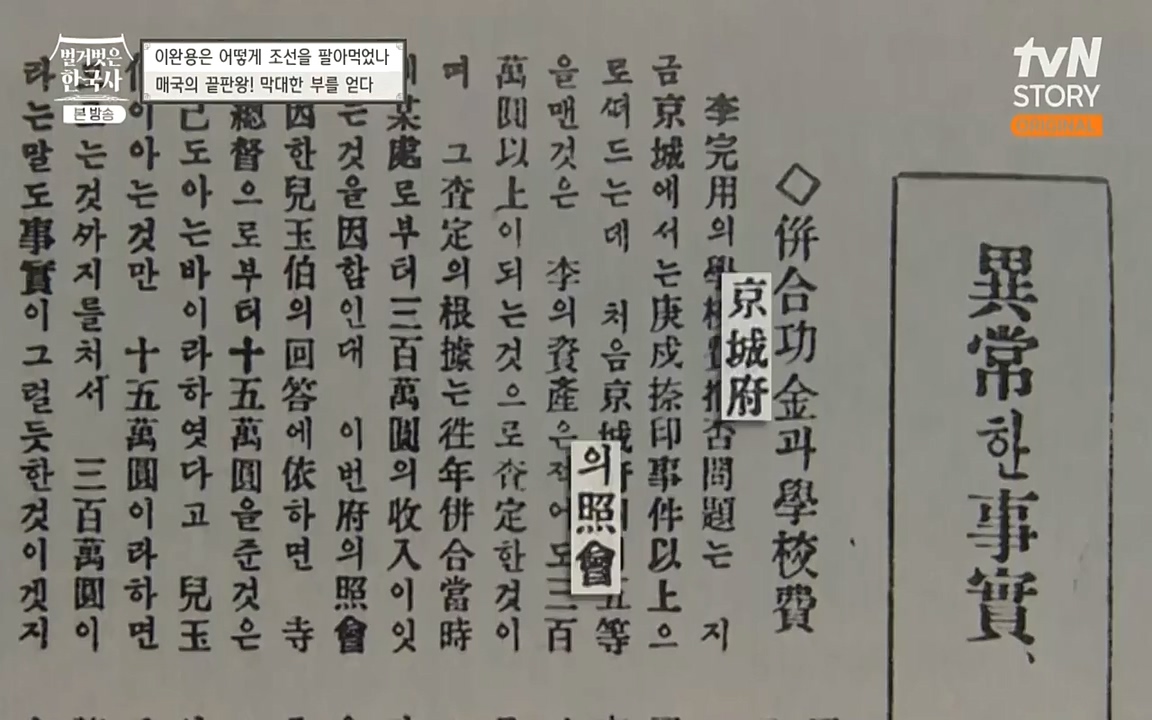 벌거벗은
한국사
본 방송
이완용은 어떻게 조선을 팔아먹었나
매국의 끝판왕! 막대한 부를 얻다
tvN
STORY
ORIGINAL
異常한事實、
◇併合功金과學校費
李完用의學 否問題는 지
京城府
금京城에서는庚戌捺印事件以上으
로셔드는데 처음京城 五等
의照會
을맨것은 李의資産은적어도三百
萬圓以上이되는것으로査定한것이
며 그査定의根據는徃年併合當時
某處로부터三百萬圓의收入이잇
는것을因함인대 이번府의照會
因한兒玉伯의回答에依하면 寺
總督으로부터十五萬圓을준것은
己도아는바이라하엿다고 兒玉
이아는것만 十五萬圓이라하면
는것까지를처서 三百萬圓이
라는말도事實이그럴듯한것이겟지